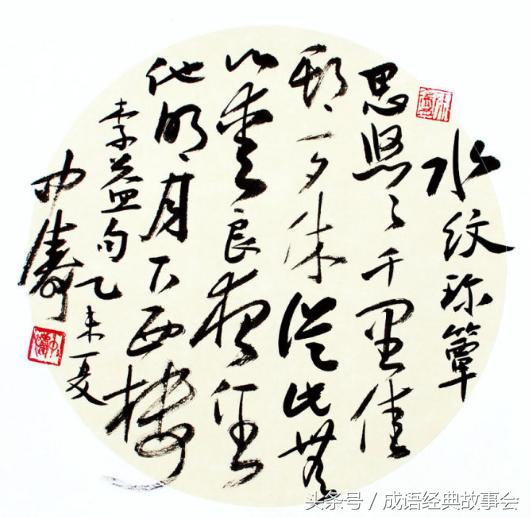 水纹珍簟
思悠々千里佳
期一夕休從此無
心愛良夜任
他明月下西楼
李益句乙未夏
头条号 / 成语经典故事会